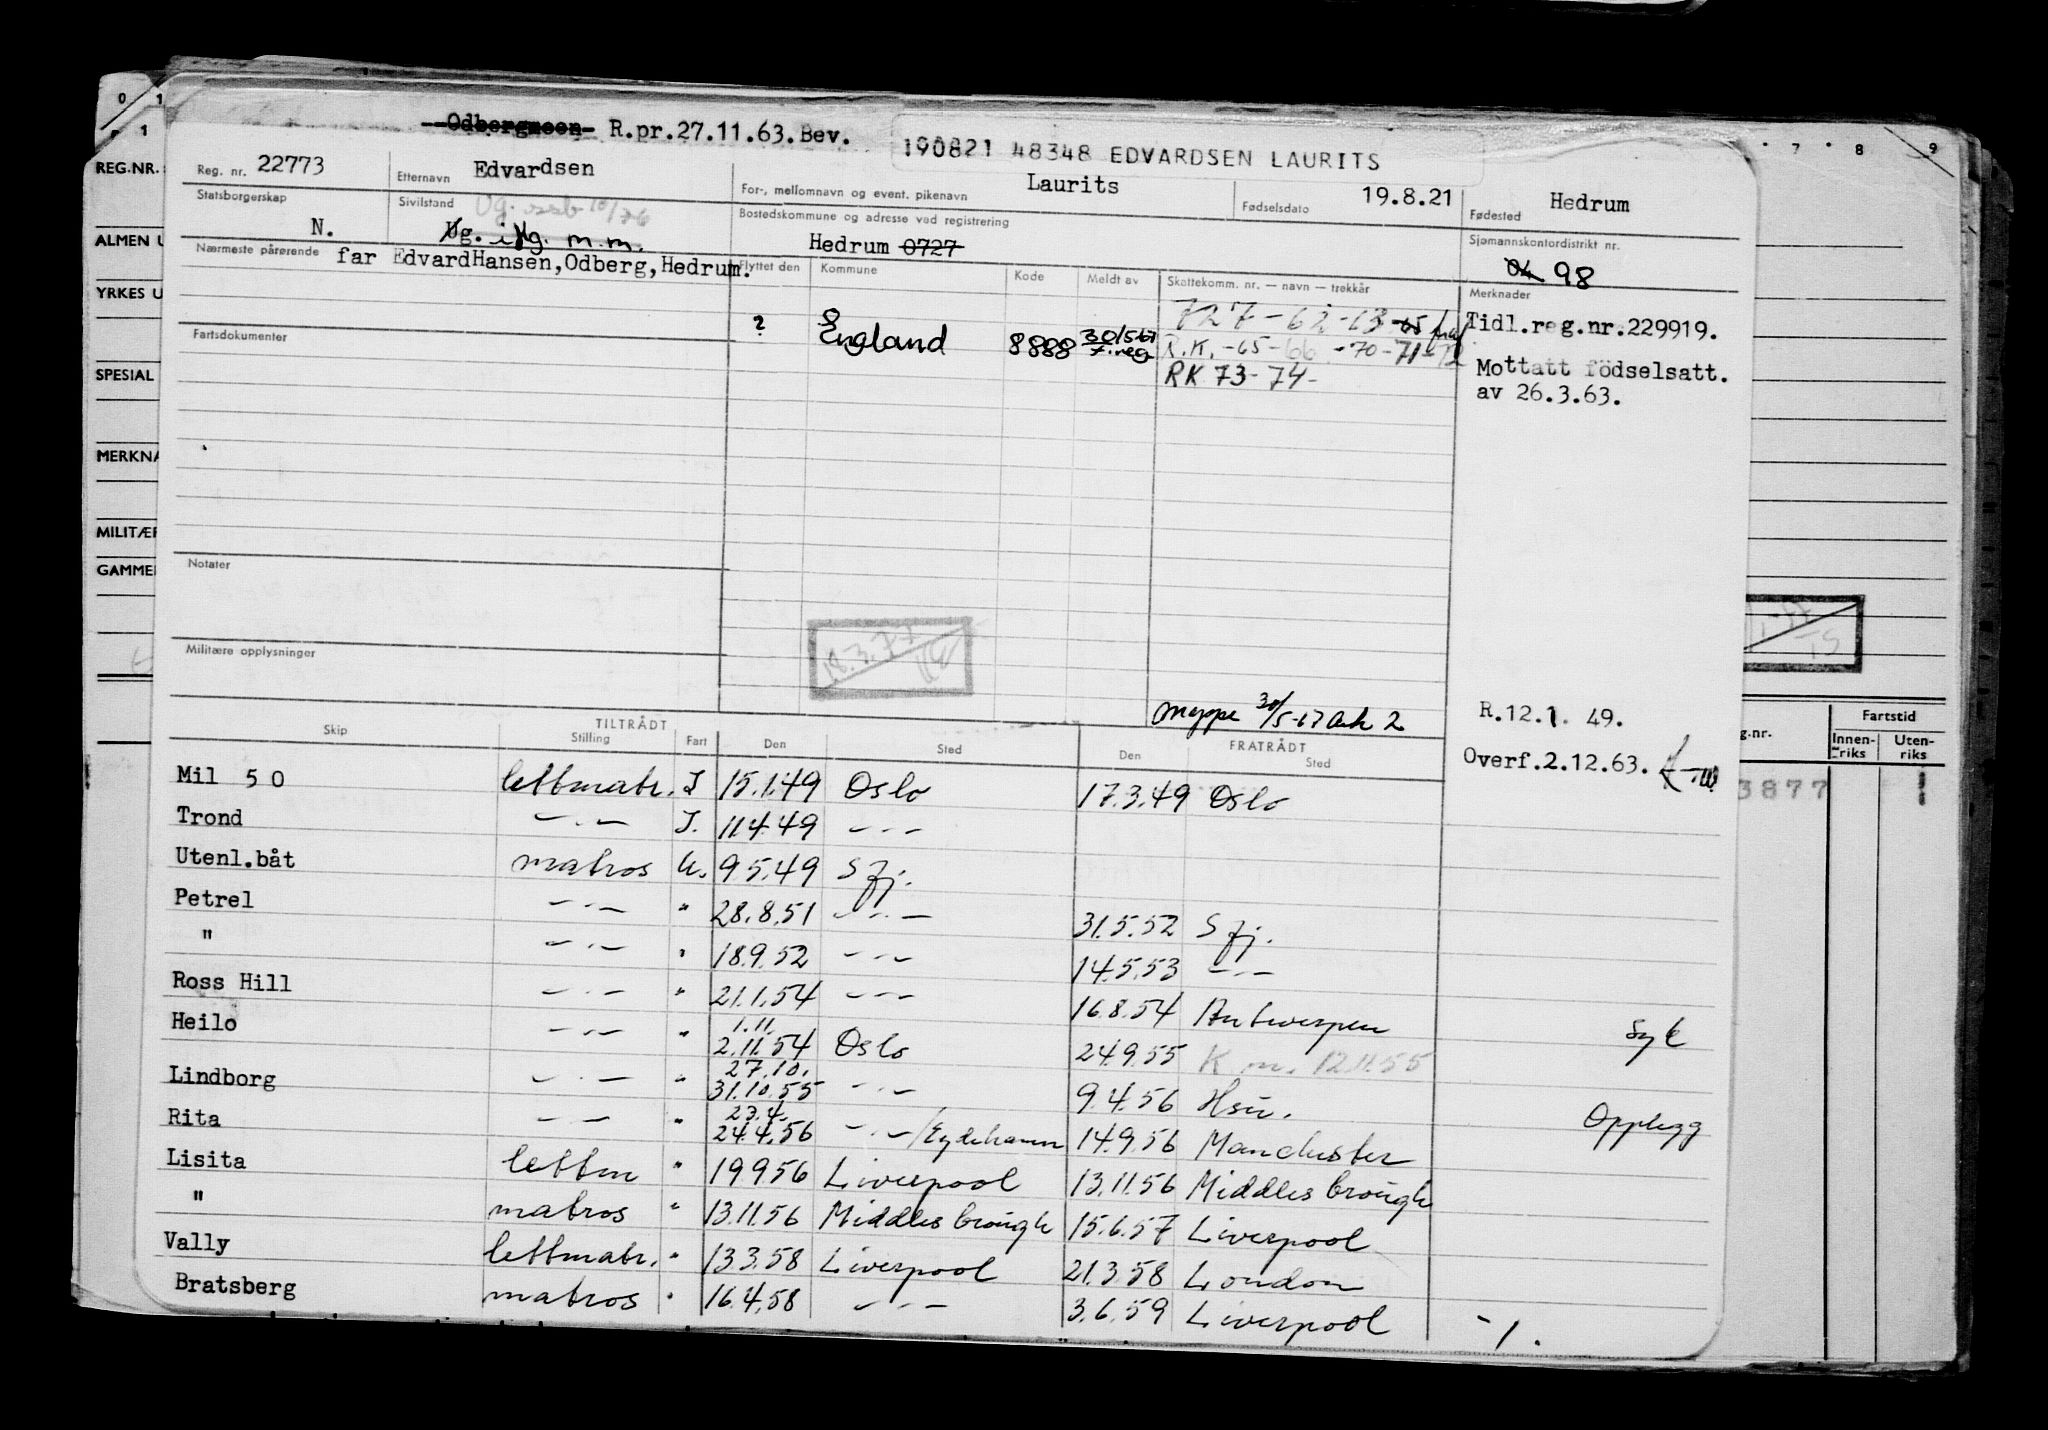 0 1
1
7 8 9
--Odbergmoen- R.pr.27.11.63.Bev.
190821 48348 EDVARDSEN LAURITS
REG.NR.
Reg. nr. 22773 Etternavn Edvardsen For-, mellomnavn og event. pikenavn Laurits Fødselsdato 19.8.21 Fødested Hedrum
Statsborgerskap N. Sivilstand Ug. m.m. Bostedskommune og adresse ved registrering Hedrum 0727 Sjømannskontordistrikt nr. 04 98
ALMEN U
Nærmeste pårørende far EdvardHansen,Odberg,Hedrum. Flyttet den Kommune Kode Meldt av Skattekomm. nr. — navn — trekkår Merknader
YRKES U
? England 8888 30/5-67 f.reg 727-62-63-65
Tidl.reg.nr.229919.
Fartsdokumenter
R.K.-65-66-70-71-72
Mottatt födselsatt.
av 26.3.63.
SPESIAL
RK 73-74-
MERKNA
MILITÆR
GAMME
Notater
18.3.77
Militære opplysninger
Mappe 30/5-67 Ark 2
R.12.1. 49.
Overf.2.12.63.
g.nr. Fartstid
Innen-riks Uten-riks
3877
Skip TILTRÅDT Stilling Fart Den Sted FRATRÅDT Den Sted
Mil 50 lettmatr. I 15.1.49 Oslo 17.3.49 Oslo
Trond -.- I. 11.4.49 -.-
Utenl.båt matros U. 9.5.49 Sfj.
Petrel -.- " 28.8.51 -.- 31.5.52 Sfj.
" -.- " 18.9.52 -.- 14.5.53 -.-
Ross Hill -.- " 21.1.54 -.- 16.8.54 Antwerpen Syk
Heilo -.- " 1.11. 2.11.54 Oslo 24.9.55 K.m. 12.11.55
Lindborg -.- " 27.10. 31.10.55 -.- 9.4.56 Hsu. Opplegg
Rita -.- " 23.4. 24.4.56 -.-/Eydehavn 14.9.56 Manchester
Lisita lettm " 19.9.56 Liverpool 13.11.56 Middlesbrough
" matros " 13.11.56 Middlesbrough 15.6.57 Liverpool
Vally lettmatr. " 13.3.58 Liverpool 21.3.58 London
Bratsberg matros " 16.4.58 -.- 3.6.59 Liverpool -1.